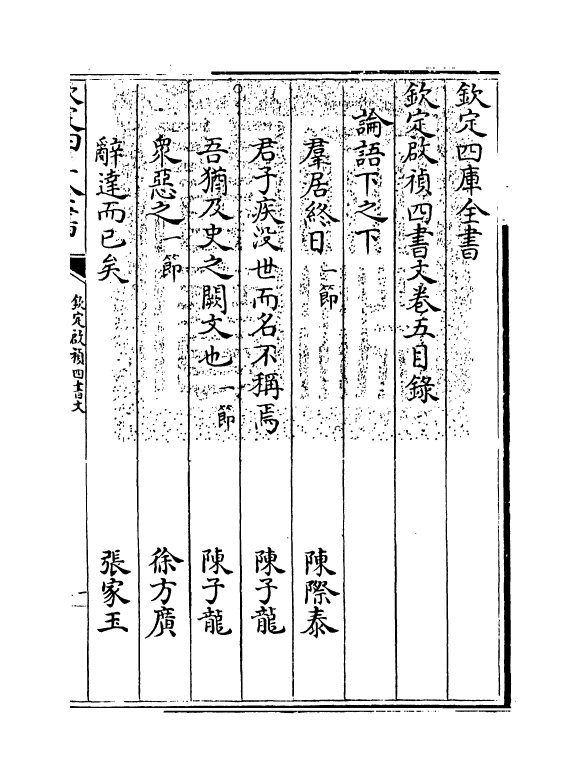 欽定四庫全書
欽定啟禎四書文卷五目錄
論語下之下
羣居終日一節 陳際泰
君子疾没世而名不稱焉 陳子龍
吾猶及史之闕文也一節 陳子龍
衆惡之一節 徐方廣
辭達而已矣 張家玉
欽定啟禎四書文